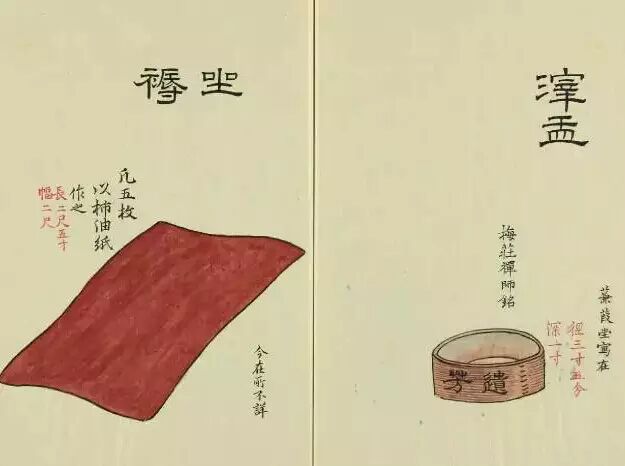 滓盂
蒹葭堂寫在
徑三寸五分
深一寸
梅莊禪師銘
遺芳
坐褥
凢五枚
以柿油紙
作之
長二尺五寸
幅二尺
今在所不詳